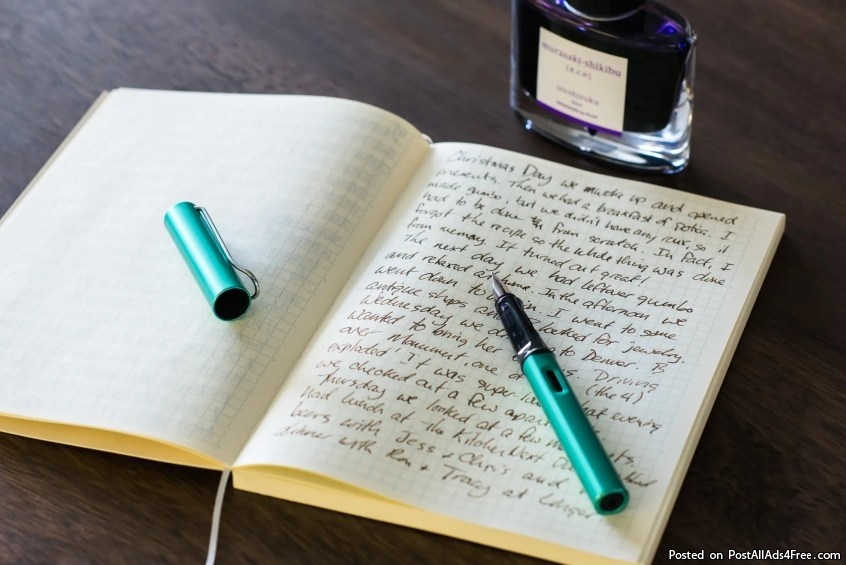 murasaki-shikibu
iroshizuku
Christmas Day we woke up and opened
presents. Then we had a breakfast of rotis. I
made gumbo, but we didn't have any roux, so it
had to be done from scratch. In fact, I
forgot the recipe so the whole thing was done
from memory. It turned out great!
The next day we had leftover gumbo
and relaxed at home. In the afternoon we
went down to I went to some
antique shops and looked for jewelry.
Wednesday we to Denver. B
wanted to bring her Driving
over Monument, one of (the 4)
exploded. It was super that evening
we checked out a few
Thursday we looked at a few more
had lunch at the Kitchen Next Door had
beers with Jess + Chris and
dinner with Ron + Tracy at
Posted on PostAllAds4Free.com